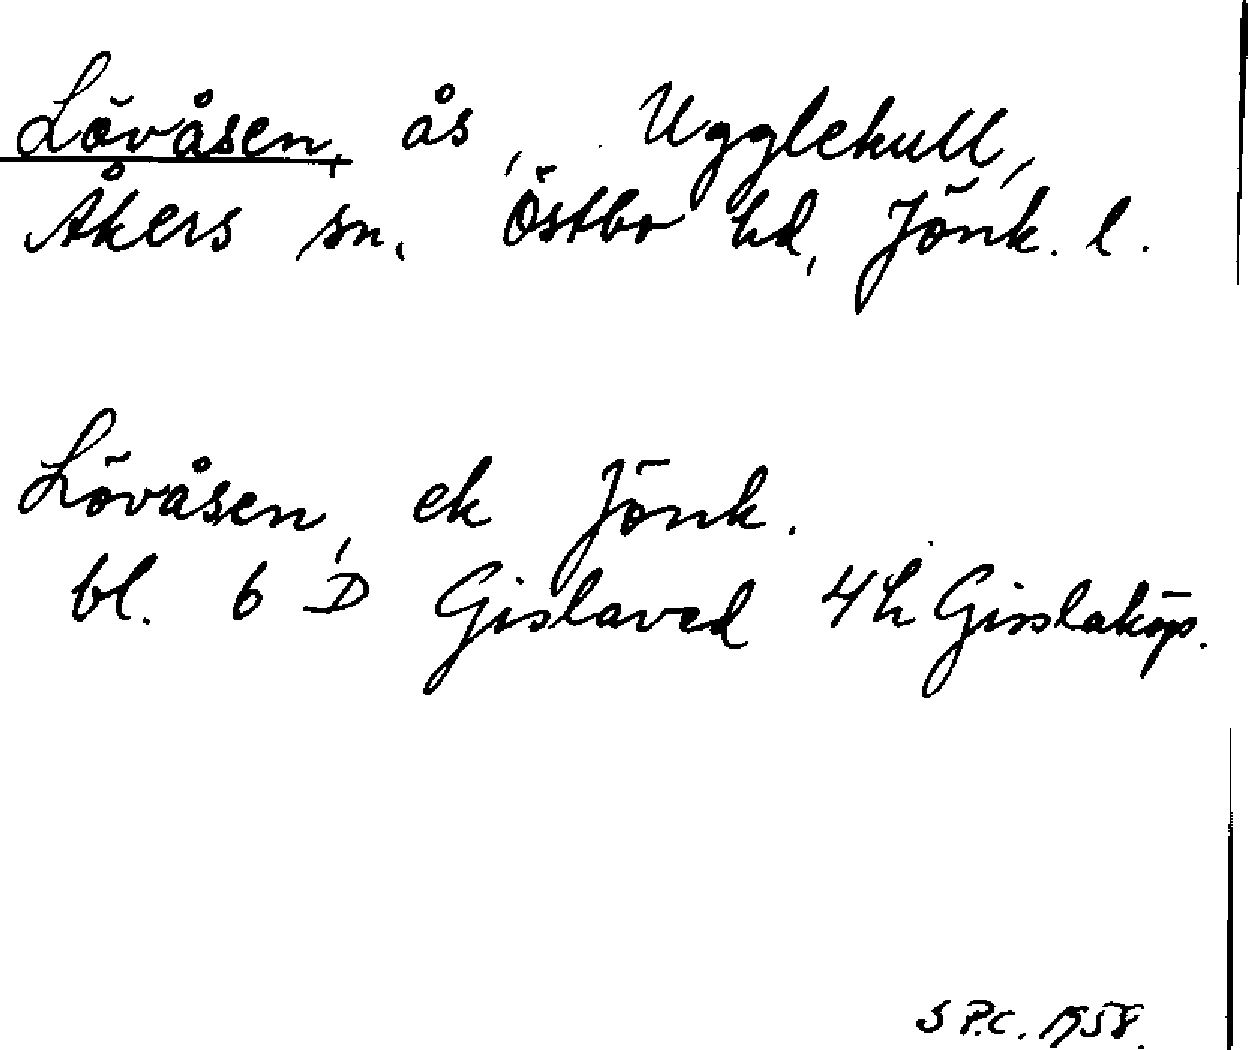 Lövåsen, ås, Ugglekull,
Åkers sn. Östbo hd, Jönk. l.
Lövåsen, ek Jönk.
bl. 6 D Gislaved 4h Gisslaköp.
S P.C. 1958.